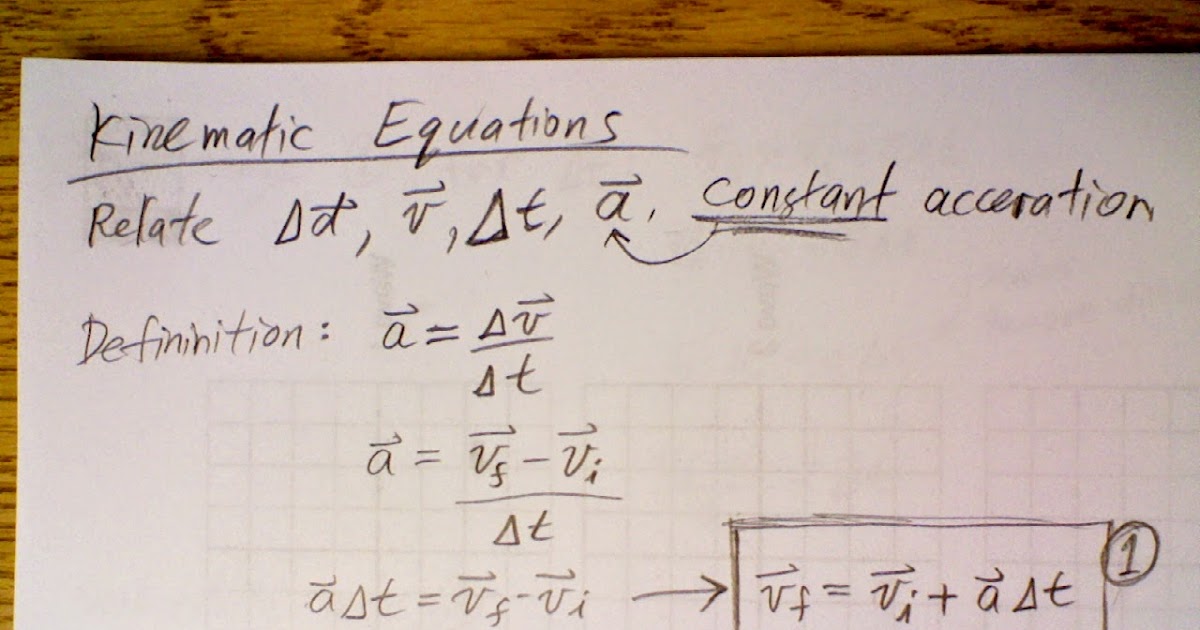 Kinematic Equations
Relate Δd⃗, v⃗, Δt, a⃗, constant acceration
Defininition: a⃗ = Δv⃗ / Δt
a⃗ = v⃗f - v⃗i / Δt
a⃗Δt = v⃗f - v⃗i → v⃗f = v⃗i + a⃗Δt 1